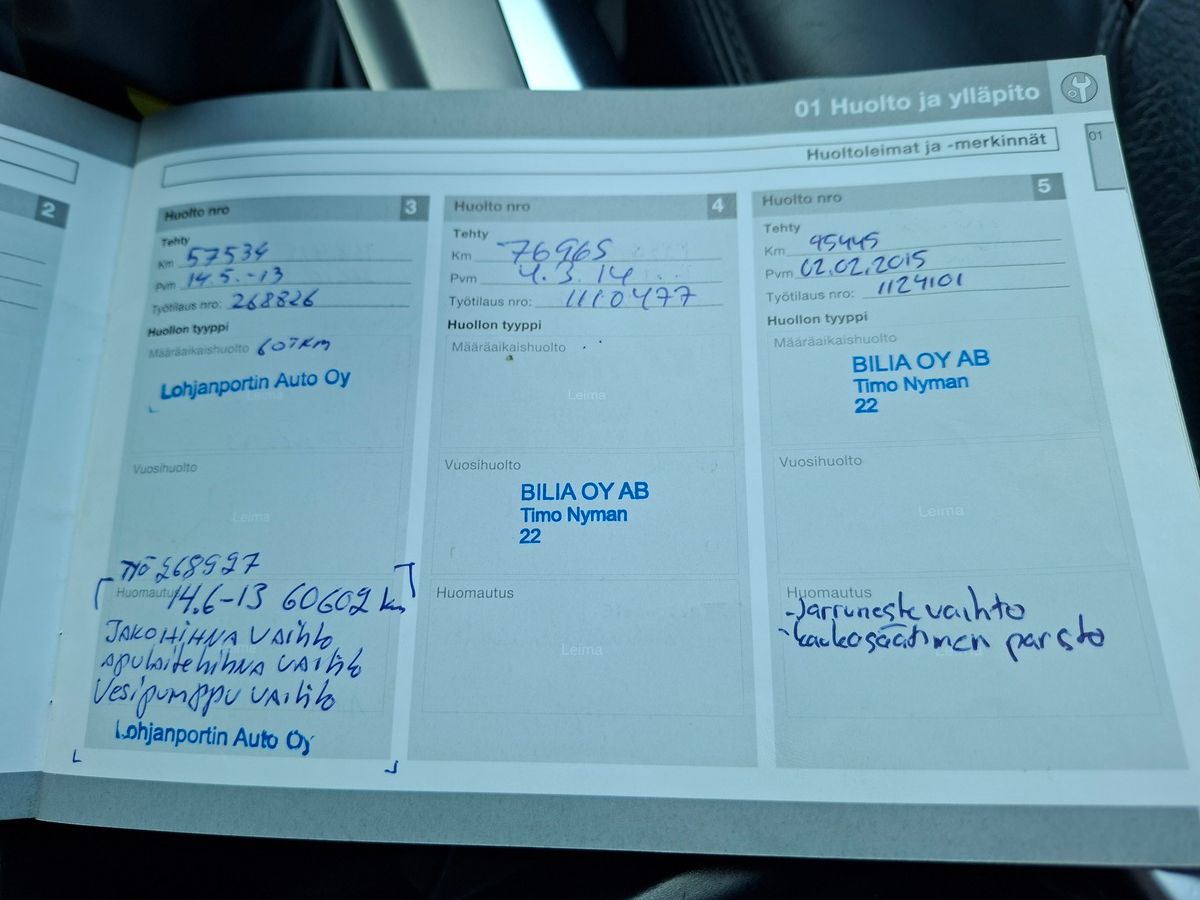 01 Huolto ja ylläpito
01
Huoltoleimat ja -merkinnät
2
Huolto nro 3
Tehty
Km 57534
Pvm 14.5.-13
Työtilaus nro: 268826
Huollon tyyppi
Määräaikaishuolto 60TKM
Lohjanportin Auto Oy
Leima
Vuosihuolto
Leima
TYÖ 268927
Huomautus 14.6-13 60602 km
JAKOHIHNA VAIHto
apulaitehihna VAIhto
Vesipumppu VAIhto
Lohjanportin Auto Oy
Huolto nro 4
Tehty
Km 76965
Pvm 4.3.14
Työtilaus nro: 1110477
Huollon tyyppi
Määräaikaishuolto
Leima
Vuosihuolto
BILIA OY AB
Timo Nyman
22
Huomautus
Leima
Huolto nro 5
Tehty
Km 95445
Pvm 02.02.2015
Työtilaus nro: 1124101
Huollon tyyppi
Määräaikaishuolto
BILIA OY AB
Timo Nyman
22
Vuosihuolto
Leima
Huomautus
-Jarruneste vaihto
-kaukosäätimen paristo